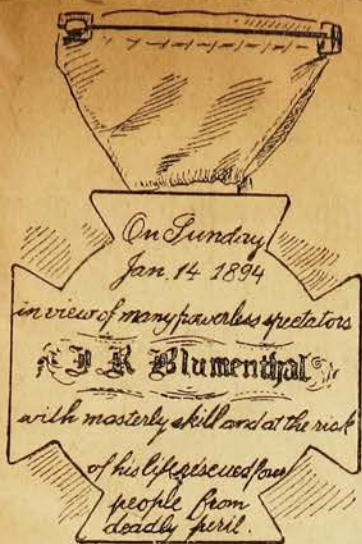 On Sunday
Jan. 14 1894
in view of many powerless spectators
J R Blumenthal
with masterly skill and at the risk
of his life rescued four
people from
deadly peril.